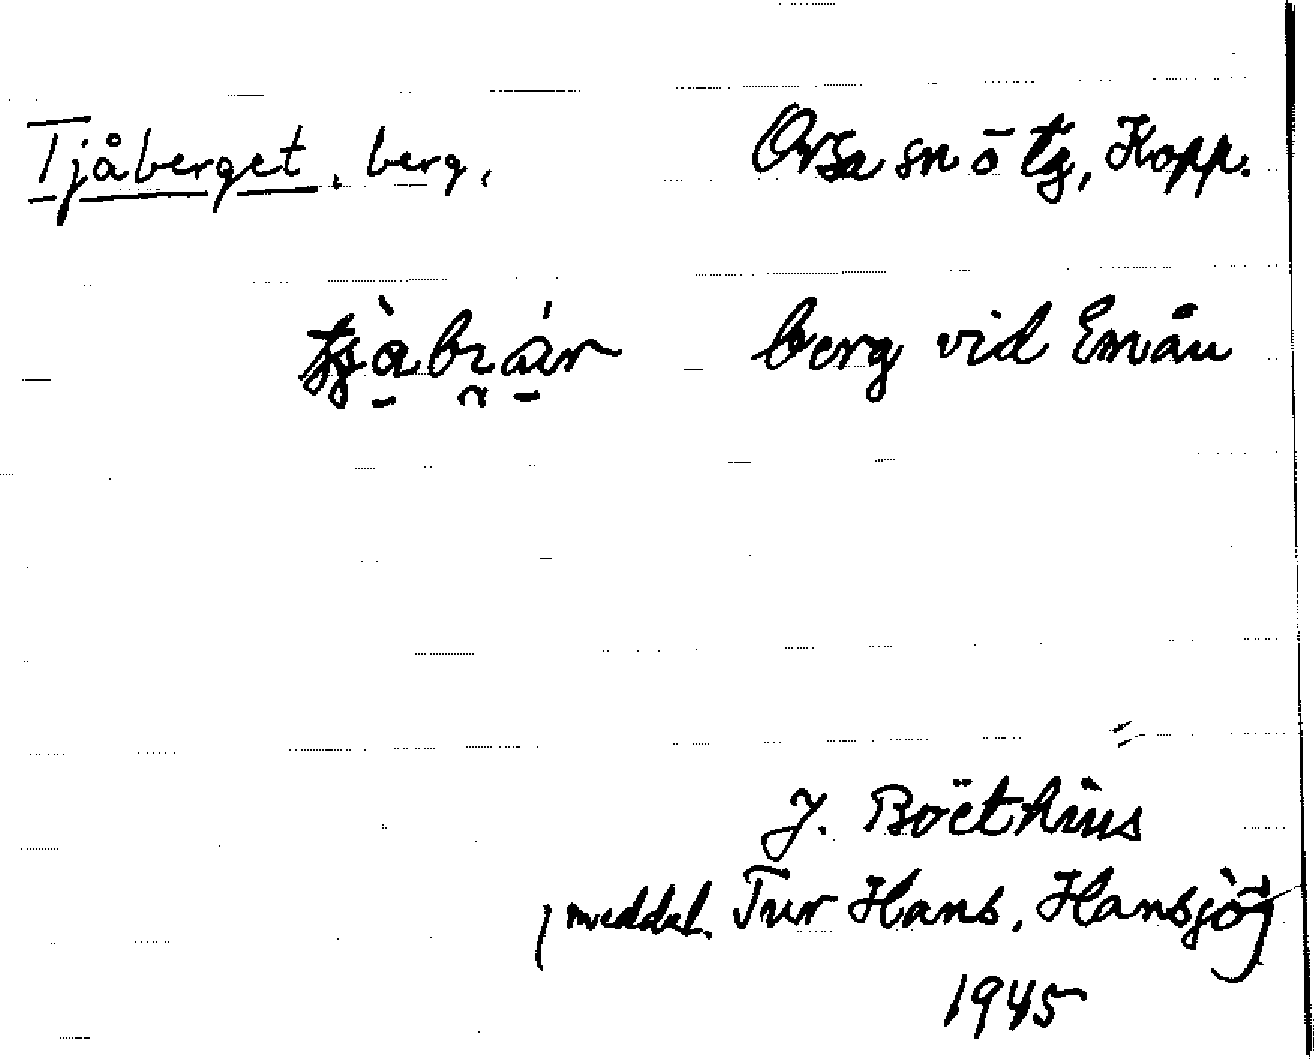 Tjåberget, berg, Orsa sn ö tg, Kopp.
berg vid Emån
J. Boëthius
(meddel. Tur Hans, Hansjö)
1945